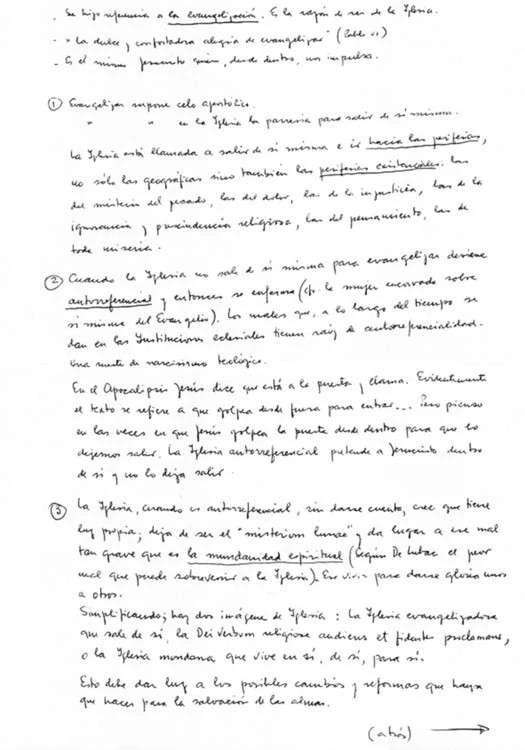 - Se hizo referencia a la evangelización. Es la razón de ser de la Iglesia.
- "La dulce y confortadora alegría de evangelizar" (Pablo VI)
- Es el mismo Jesucristo quien, desde dentro, nos impulsa.
① Evangelizar supone celo apostólico.
" " en la Iglesia la parresia para salir de sí misma.
La Iglesia está llamada a salir de sí misma e ir hacia las periferias,
no sólo las geográficas sino también las periferias existenciales: las
del misterio del pecado, las del dolor, las de la injusticia, las de la
ignorancia y prescindencia religiosa, las del pensamiento, las de
toda miseria.
② Cuando la Iglesia no sale de sí misma para evangelizar deviene
autorreferencial y entonces se enferma (cfr. la mujer encorvada sobre
sí misma del Evangelio). Los males que, a lo largo del tiempo, se
dan en las Instituciones eclesiales tienen raíz de autorreferencialidad.
Una suerte de narcisismo teológico.
En el Apocalipsis Jesús dice que está a la puerta y llama. Evidentemente
el texto se refiere a que golpea desde fuera para entrar... Pero pienso
en las veces en que Jesús golpea la puerta desde dentro para que lo
dejemos salir. La Iglesia autorreferencial pretende a Jesucristo dentro
de sí y no lo deja salir.
③ La Iglesia, cuando es autorreferencial, sin darse cuenta, cree que tiene
luz propia; deja de ser el "misterium lunae" y da lugar a ese mal
tan grave que es la mundanidad espiritual (Según De Lubac el peor
mal que puede sobrevenir a la Iglesia). Ese vivir para darse gloria unos
a otros.
Simplificando; hay dos imágenes de Iglesia: la Iglesia evangelizadora
que sale de sí, la Dei Verbum religiose audiens et fidenter proclamans,
o la Iglesia mundana que vive en sí, de sí, para sí.
Esto debe dar luz a los posibles cambios y reformas que haya
que hacer para la salvación de las almas.
(atrás) →